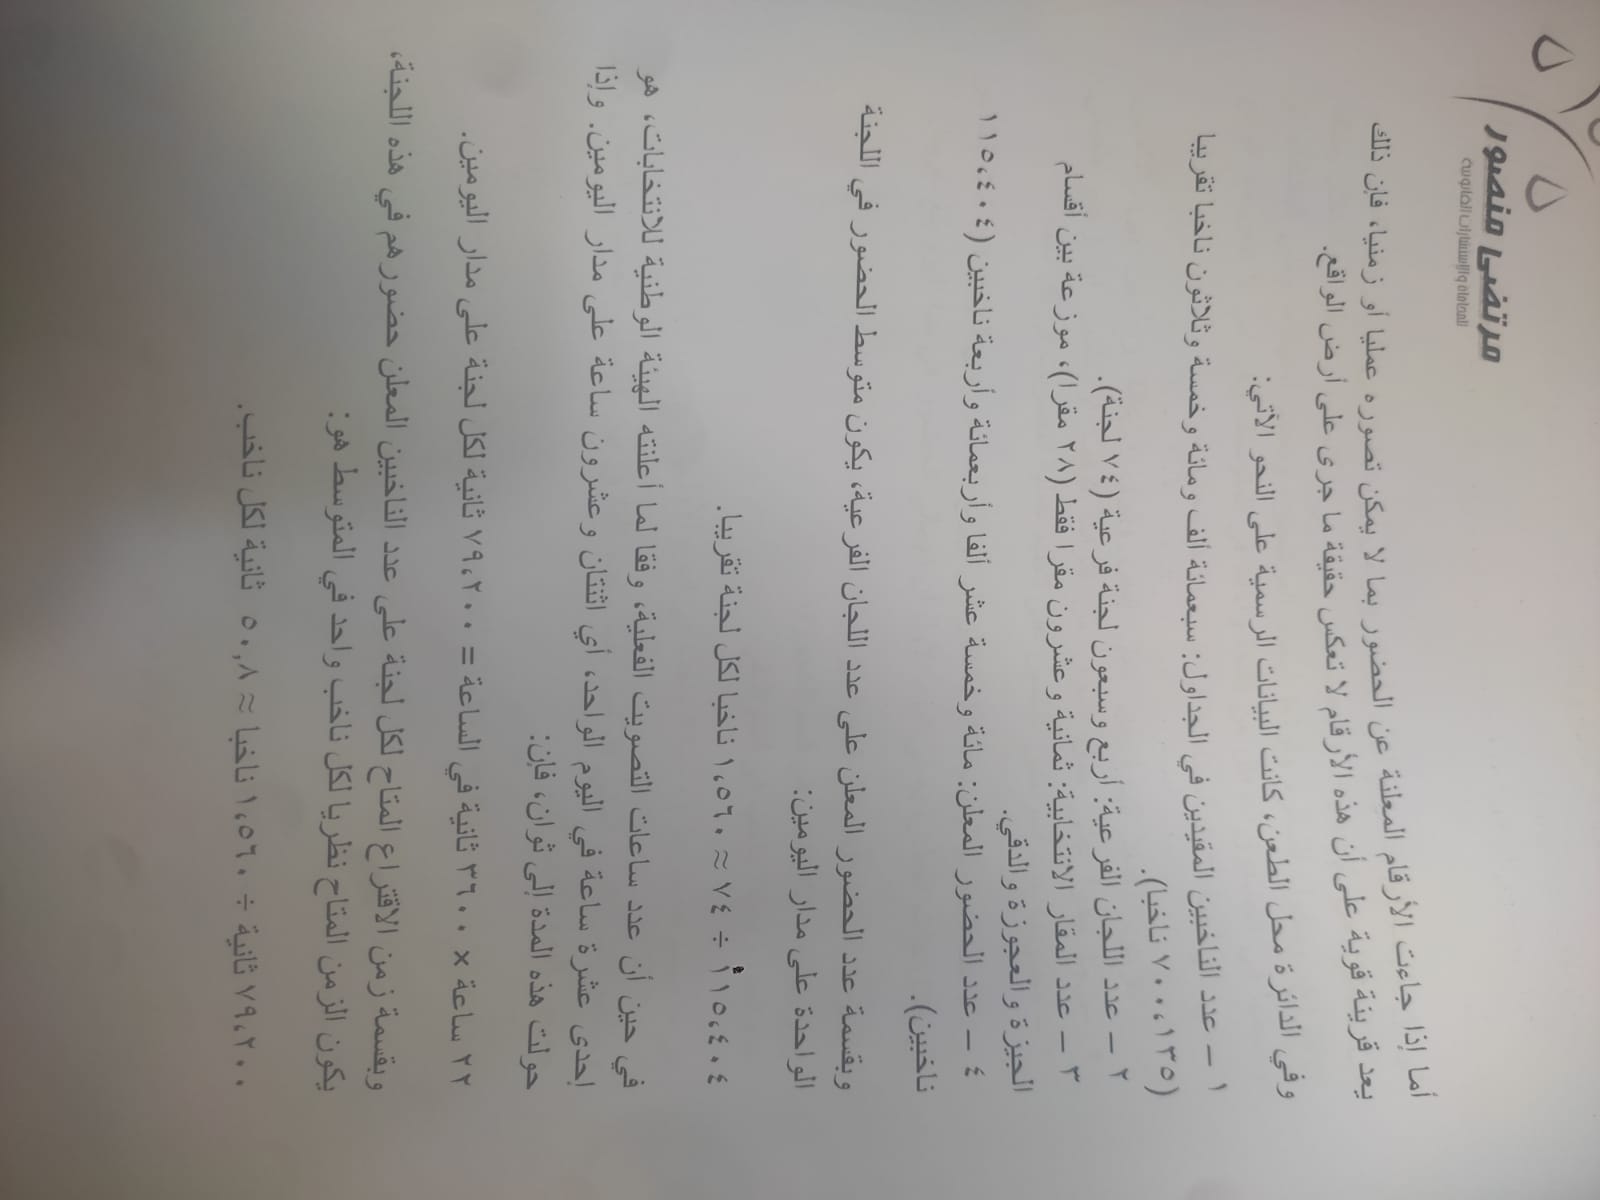 مرتضى منصور
للمحاماة والإستشارات القانونية
أما إذا جاءت الأرقام المعلنة عن الحضور بما لا يمكن تصوره عمليا أو زمنيا، فإن ذلك
يعد قرينة قوية على أن هذه الأرقام لا تعكس حقيقة ما جرى على أرض الواقع.
وفي الدائرة محل الطعن، كانت البيانات الرسمية على النحو الآتي:
١ – عدد الناخبين المقيدين في الجداول: سبعمائة ألف ومائة وخمسة وثلاثون ناخبا تقريبا
(٧٠٠،١٣٥ ناخبا).
٢ – عدد اللجان الفرعية: أربع وسبعون لجنة فرعية (٧٤ لجنة).
٣ – عدد المقار الانتخابية: ثمانية وعشرون مقرا فقط (٢٨ مقرا)، موزعة بين أقسام
الجيزة والعجوزة والدقي.
٤ – عدد الحضور المعلن: مائة وخمسة عشر ألفا وأربعمائة وأربعة ناخبين (١١٥،٤٠٤
ناخبين).
وبقسمة عدد الحضور المعلن على عدد اللجان الفرعية، يكون متوسط الحضور في اللجنة
الواحدة على مدار اليومين:
١١٥،٤٠٤ ÷ ٧٤ ≈ ١،٥٦٠ ناخبا لكل لجنة تقريبا.
في حين أن عدد ساعات التصويت الفعلية، وفقا لما أعلنته الهيئة الوطنية للانتخابات، هو
إحدى عشرة ساعة في اليوم الواحد، أي اثنتان وعشرون ساعة على مدار اليومين. وإذا
حولت هذه المدة إلى ثوان، فإن:
٢٢ ساعة × ٣٦٠٠ ثانية في الساعة = ٧٩،٢٠٠ ثانية لكل لجنة على مدار اليومين.
وبقسمة زمن الاقتراع المتاح لكل لجنة على عدد الناخبين المعلن حضورهم في هذه اللجنة،
يكون الزمن المتاح نظريا لكل ناخب واحد في المتوسط هو:
٧٩،٢٠٠ ثانية ÷ ١،٥٦٠ ناخبا ≈ ٥٠,٨ ثانية لكل ناخب.